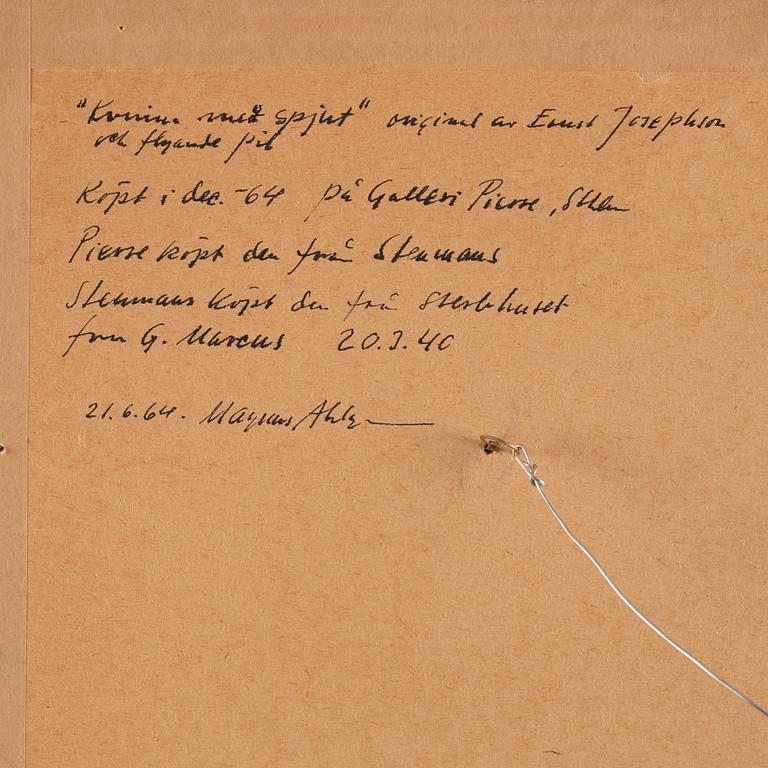 "Kvinna med spjut" original av Ernst Josephson
och flygande pil
Köpt i dec. -64 på Galleri Pierre, Sthlm
Pierre köpt den från Stenmans
Stenmans köpt den från Sterbhuset
från G. Marcus 20.3.40
21.6.64. Magnus